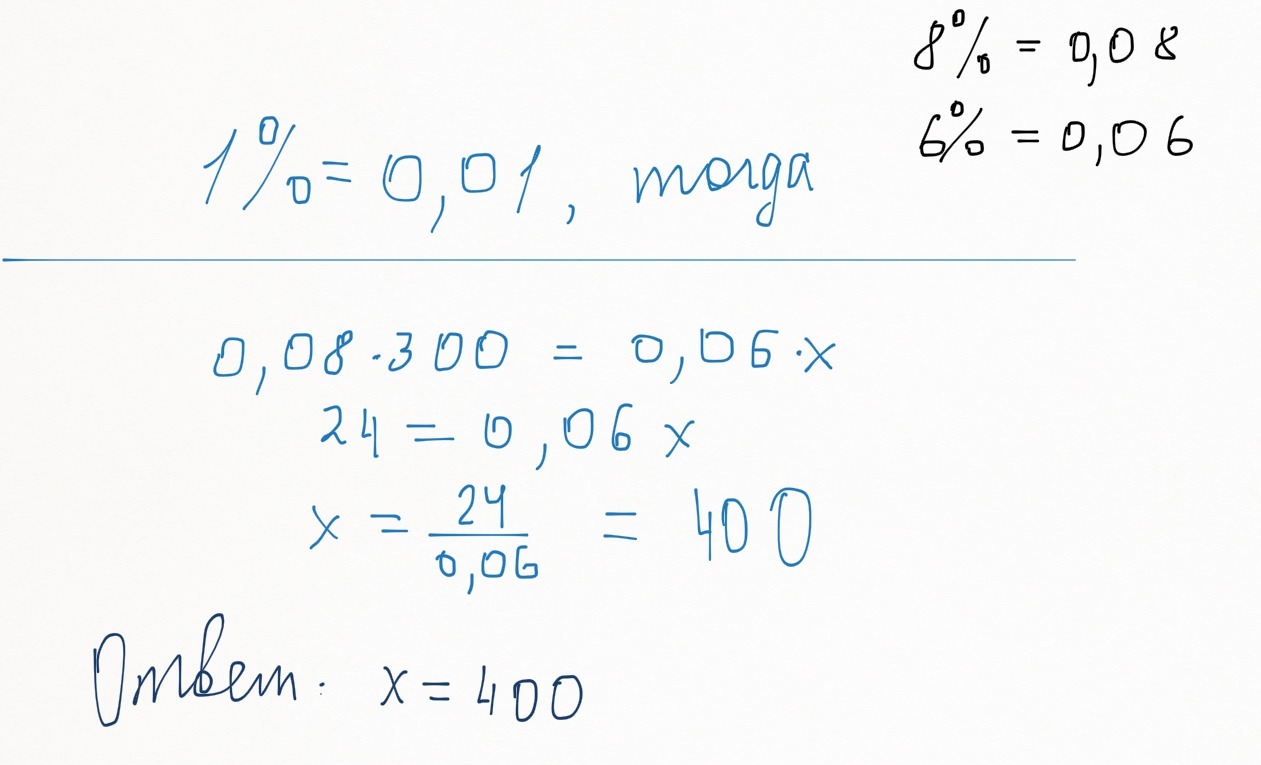 8% = 0,08
6% = 0,06
1% = 0,01, тогда
0,08·300 = 0,06·x
24 = 0,06x
x = 24/0,06 = 400
Ответ: x = 400